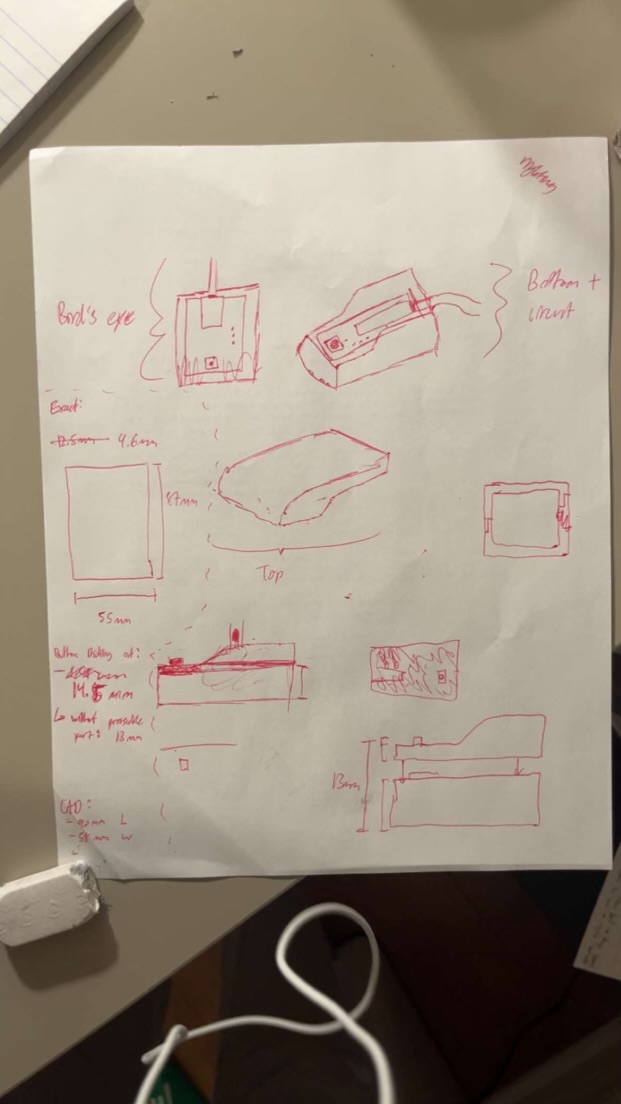 Bird's eye
Bottom +
circuit
Exact:
12.5mm 4.6mm
87mm
55mm
Top
Button sticking out:
14.5 mm
↳ without pressable
part: 13mm
13mm
CAD:
- 90mm L
- 58mm W